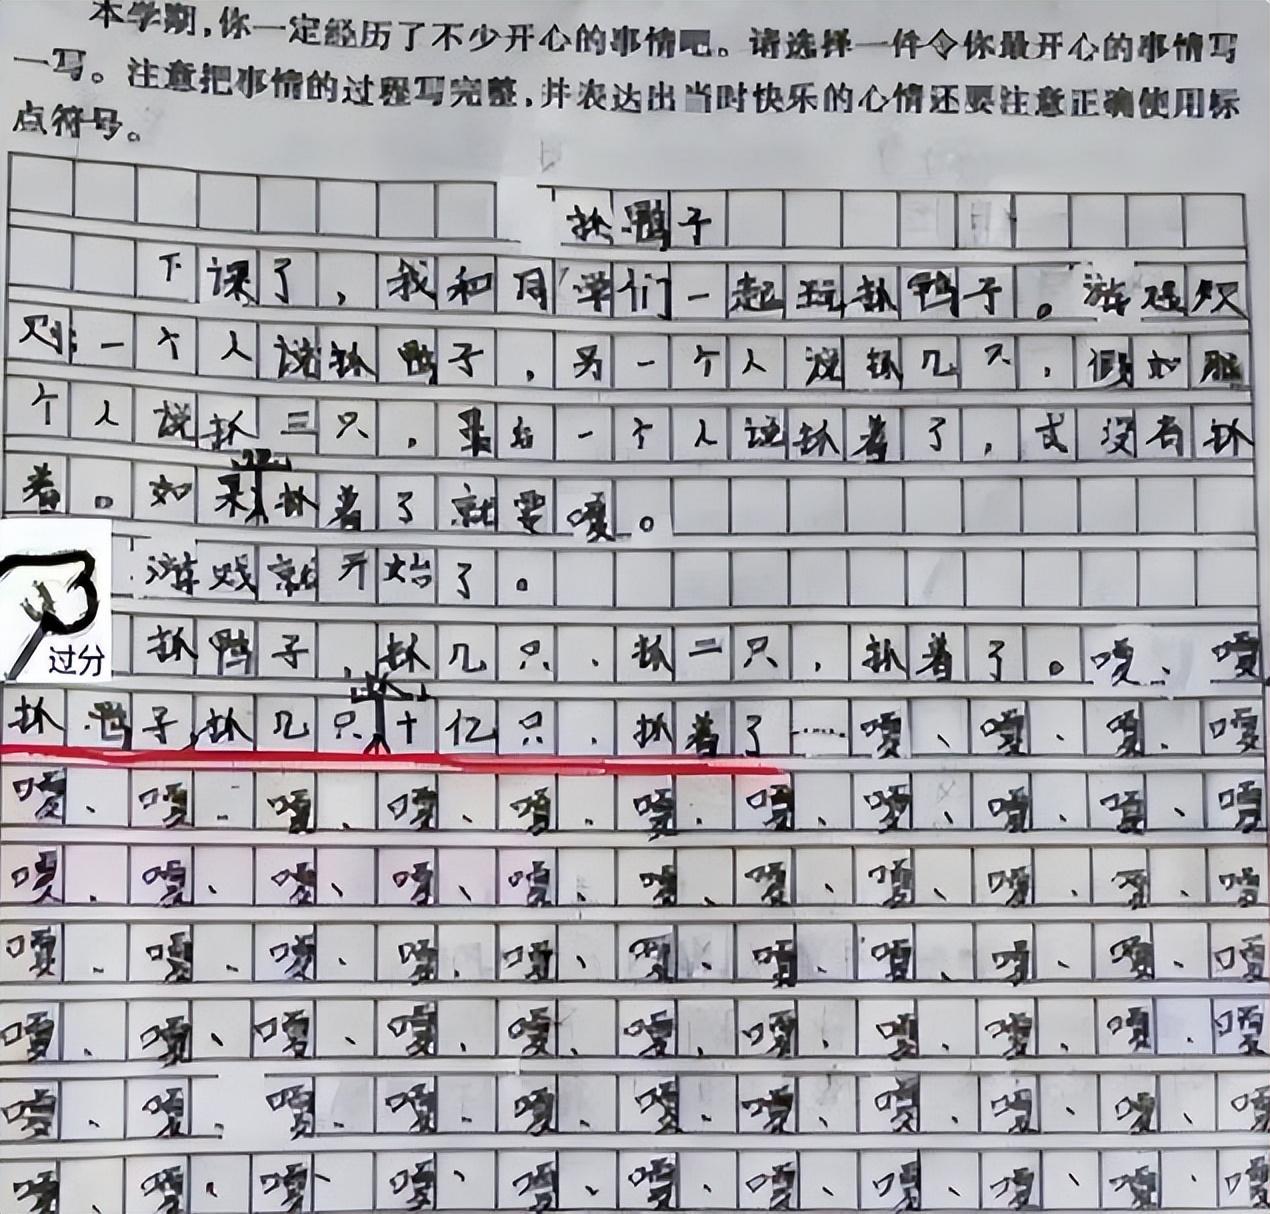 本学期,你一定经历了不少开心的事情吧。请选择一件令你最开心的事情写
一写。注意把事情的过程写完整,并表达出当时快乐的心情还要注意正确使用标
点符号。
抓鸭子
下课了,我和同学们一起玩抓鸭子。游戏规
则:一个人说抓鸭子,另一个人说抓几只,假如那
个人说抓三只,最后一个人说抓着了,或没有抓
着。如果抓着了就要嘎。
游戏就开始了。
过分
抓鸭子,抓几只、抓二只,抓着了。嘎、嘎
抓鸭子,抓几只十亿只、抓着了……嘎、嘎、嘎、嘎
嘎、嘎、嘎、嘎、嘎、嘎、嘎、嘎、嘎、嘎、嘎
嘎、嘎、嘎、嘎、嘎、嘎、嘎、嘎、嘎、嘎、嘎
嘎、嘎、嘎、嘎、嘎、嘎、嘎、嘎、嘎、嘎、嘎
嘎、嘎、嘎、嘎、嘎、嘎、嘎、嘎、嘎、嘎、嘎
嘎、嘎、嘎、嘎、嘎、嘎、嘎、嘎、嘎、嘎、嘎
嘎、嘎、嘎、嘎、嘎、嘎、嘎、嘎、嘎、嘎、嘎